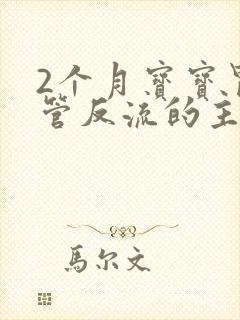 2个月寶寶胃
管反流的主
馬尔文